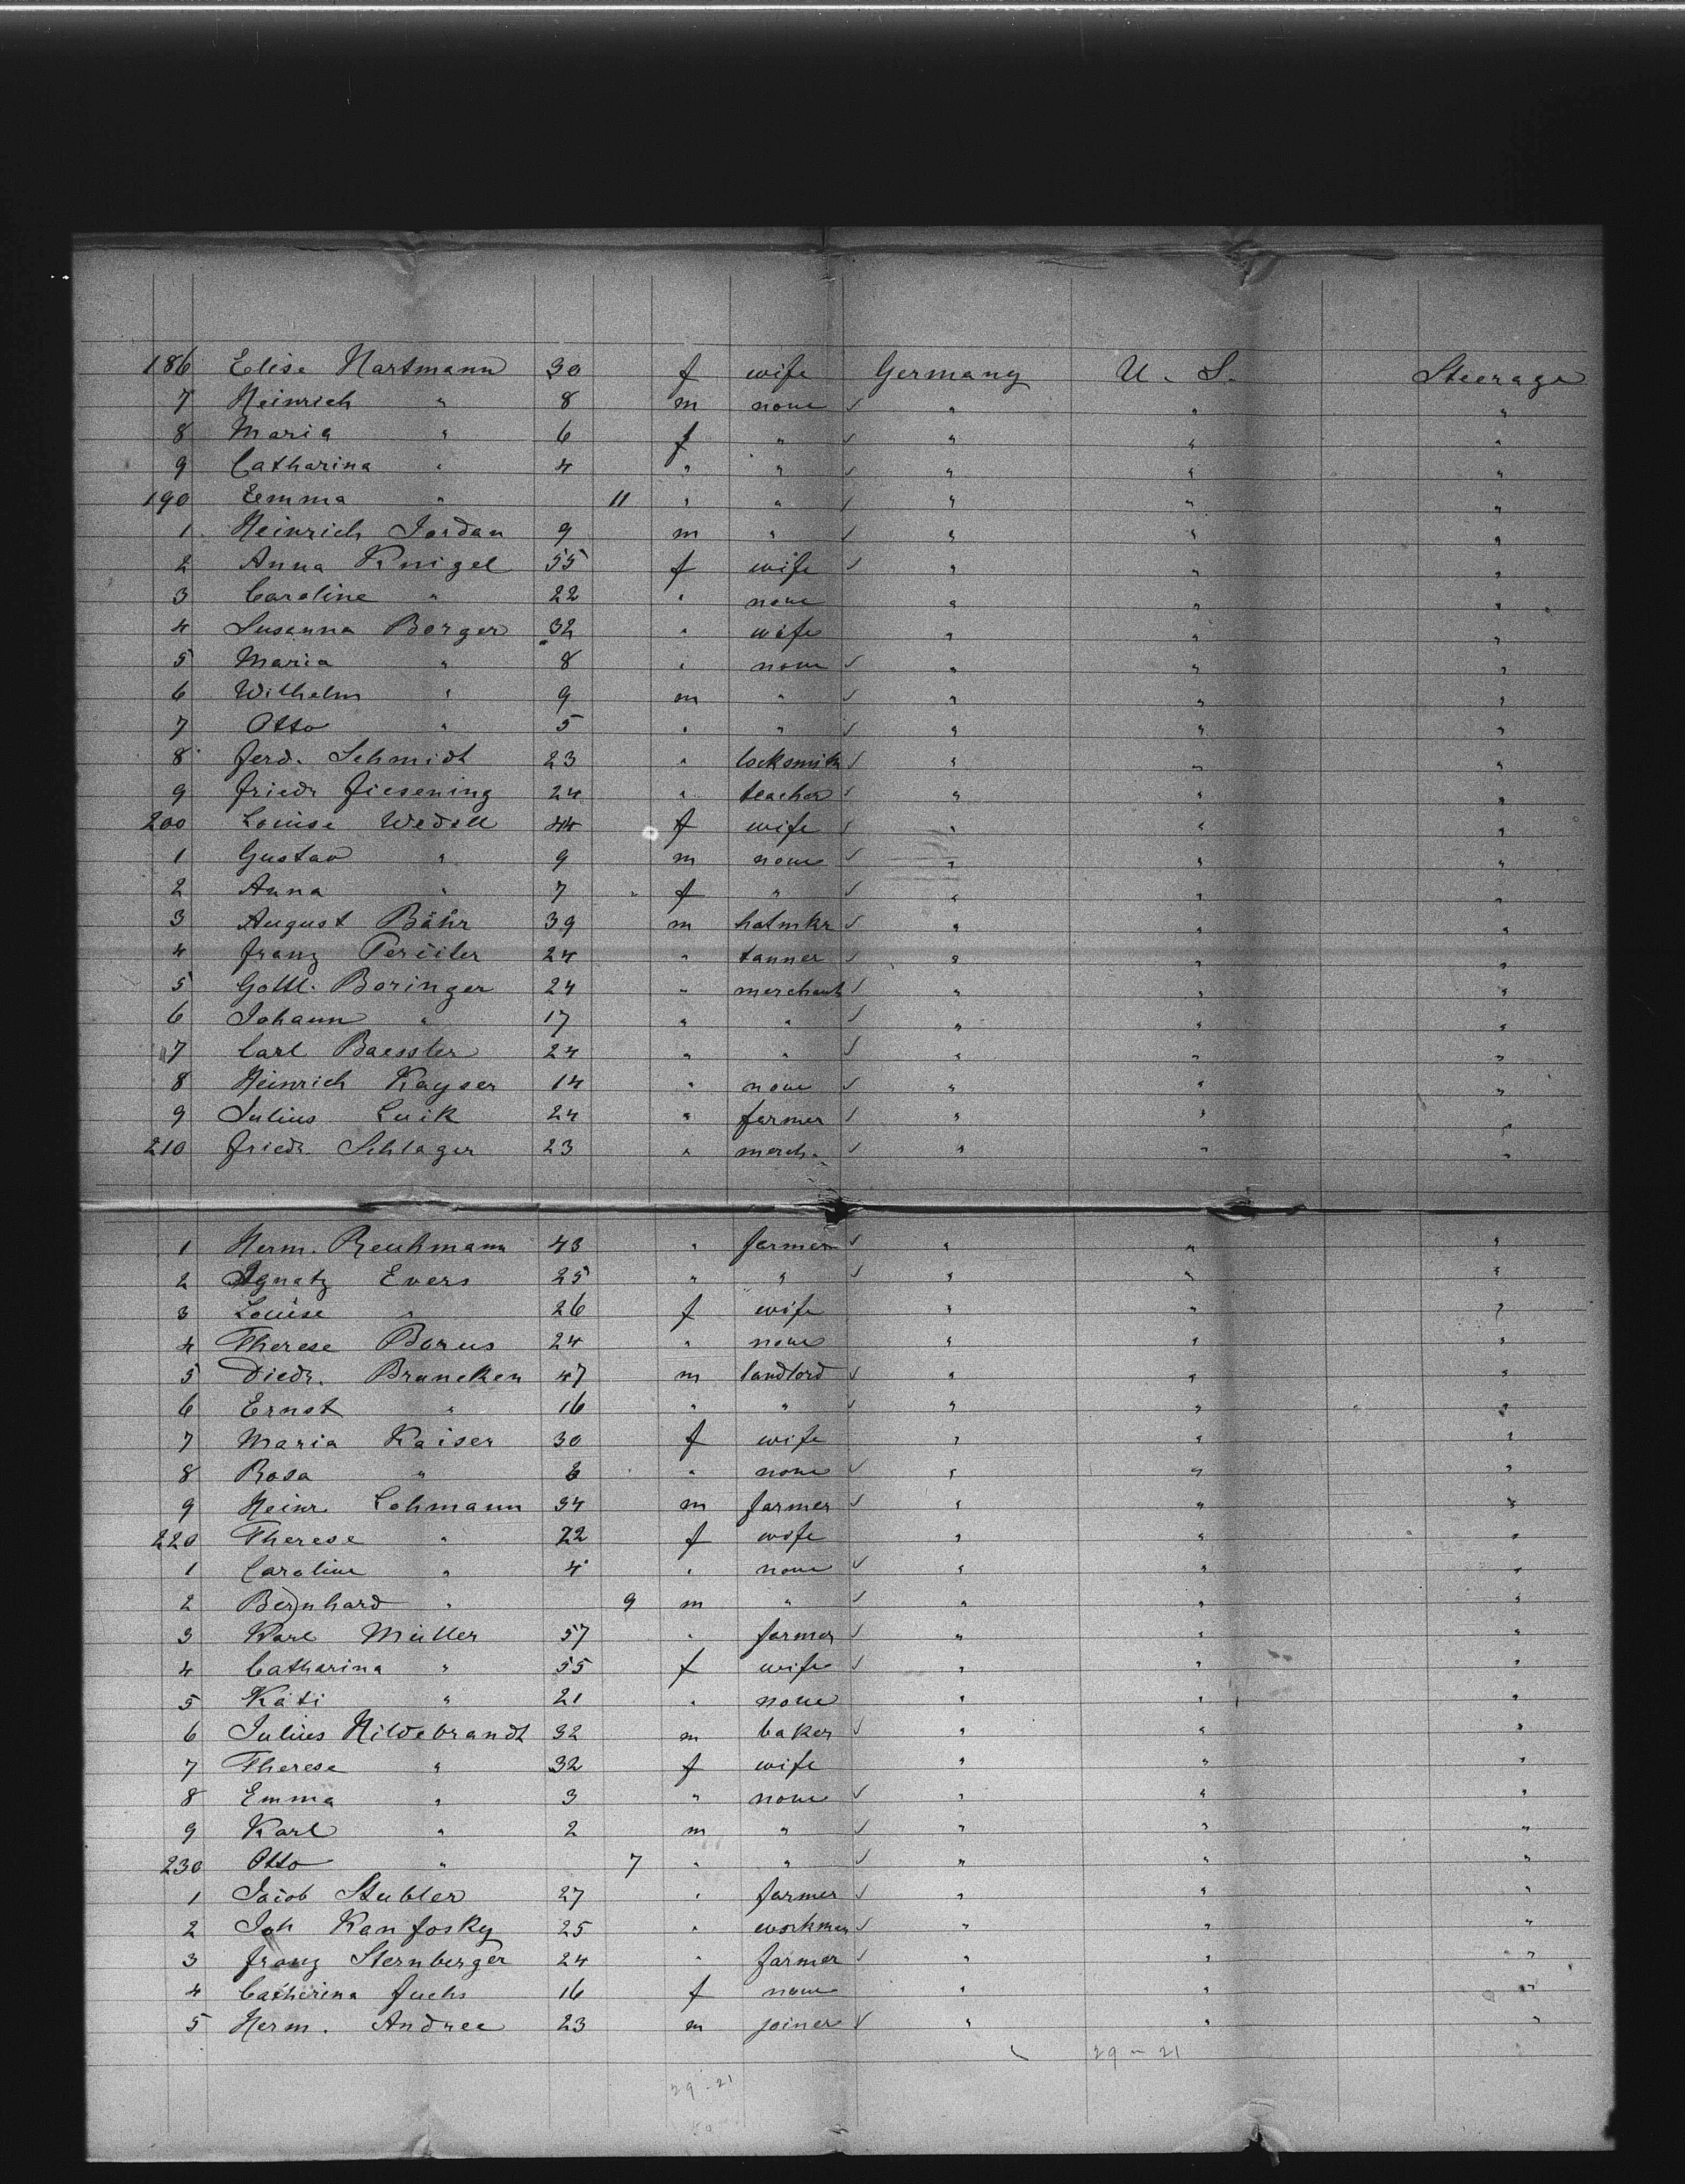 186 Elise Hartmann 30 f wife Germany U. S. Steerage
7 Heinrich " 8 m none " " "
8 Maria " 6 f " " " "
9 Catharina " 4 " " " " "
190 Emma " 11 " " " " "
1 Heinrich Jordan 9 m " " " "
2 Anna Knigel 55 f wife " " "
3 Caroline " 22 " none " " "
4 Susanna Borger 32 " wife " " "
5 Maria " 8 " none " " "
6 Wilhelm " 9 m " " " "
7 Otto " 5 " " " " "
8 Ferd. Schmidt 23 " locksmith " " "
9 Friedr Fiesening 24 " teacher " " "
200 Louise Wedell 44 f wife " " "
1 Gustav " 9 m none " " "
2 Anna " 7 f " " " "
3 August Bähr 39 m hatmkr " " "
4 Franz 24 " tanner " " "
5 Gottl. Boringer 24 " merchant " " "
6 Johann " 17 " " " " "
7 Carl Baessler 24 " " " " "
8 Heinrich Kayser 14 " none " " "
9 Julius Luik 24 " farmer " " "
210 Friedr. Schlager 23 " merch. " " "
1 Herm. Reuhmann 43 " farmer " " "
2 Ignatz Evers 25 " " " " "
3 Louise " 26 f wife " " "
4 Therese Borus 24 " none " " "
5 Diedr. Bruncken 47 m landlord " " "
6 Ernst " 16 " " " " "
7 Maria Kaiser 30 f wife " " "
8 Rosa " " none " " "
9 Heinr Lohmann 34 m farmer " " "
220 Therese " 22 f wife " " "
1 Caroline " 4 " none " " "
2 Bernhard " 9 m " " " "
3 Karl Müller 57 " farmer " " "
4 Catharina " 55 f wife " " "
5 Käti " 21 " none " " "
6 Julius Hildebrandt 32 m baker " " "
7 Therese " 32 f wife " " "
8 Emma " 3 " none " " "
9 Karl " 2 m " " " "
230 Otto " 7 " " " " "
1 Jacob Stubler 27 " farmer " " "
2 Joh Kanfosky 25 " workman " " "
3 Franz Sternberger 24 " farmer " " "
4 Catherina Fuchs 16 f none " " "
5 Herm. Andree 23 m joiner " " "
29 - 21
29 - 21
50